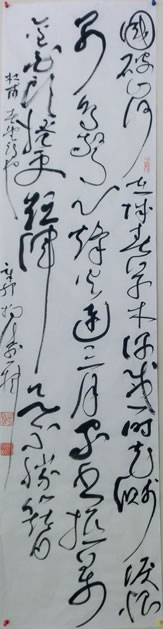 國破山河在城春草木深感時花濺淚恨
別鳥驚心烽火連三月家書抵萬
金白頭搔更短渾欲不勝簪
杜甫春望 辛卯